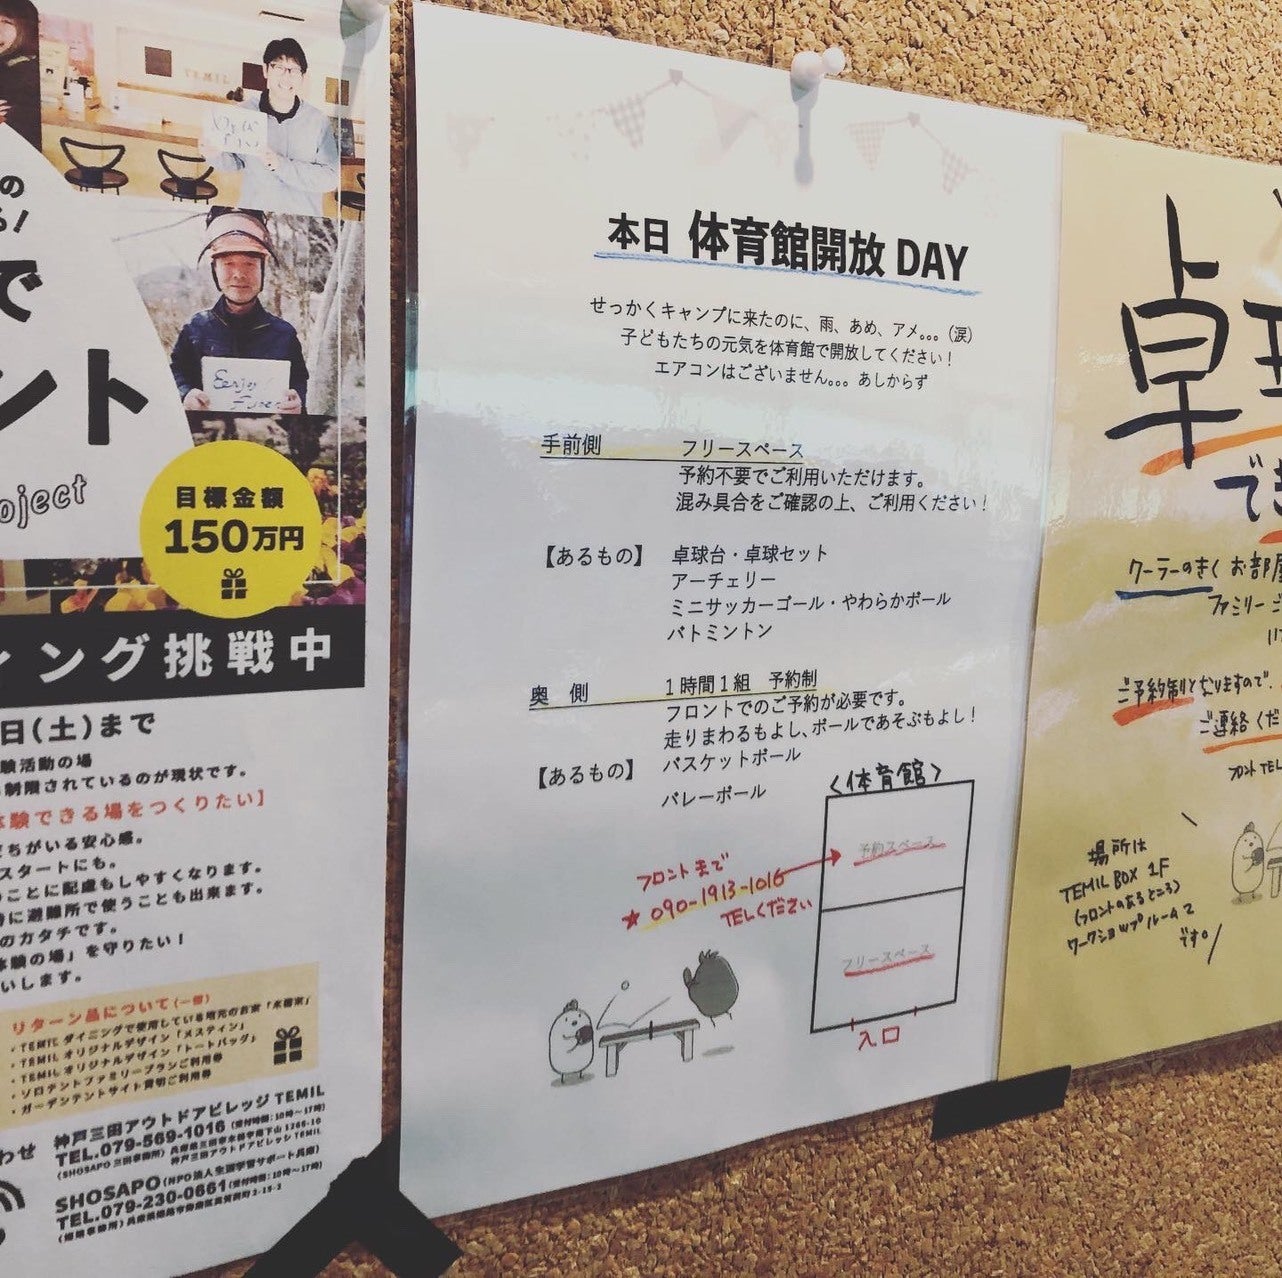 TEMIL
Enjoy!
の
る!
で
ント
oject
目標金額
150万円
ィング挑戦中
日(土)まで
験活動の場
制限されているのが現状です。
体験できる場をつくりたい】
ちがいる安心感。
スタートにも。
ことに配慮もしやすくなります。
時に避難所で使うことも出来ます。
のカタチです。
体験の場」を守りたい!
いします。
リターン品について(一部)
・TEMIL ダイニングで使用している地元のお米「
・TEMIL オリジナルデザイン「メスティン」
・TEMIL オリジナルデザイン「トートバッグ」
・ソロテントファミリープランご利用券
・ガーデンテントサイト貸切ご利用券
わせ
神戸三田アウトドアビレッジ TEMIL
TEL.079-569-1016(受付時間:10時〜17時)
神戸三田アウトドアビレッジ TEMIL
SHOSAPO(NPO法人生涯学習サポート兵庫)
TEL.079-230-0661(受付時間:10時〜17時)
本日 体育館開放 DAY
せっかくキャンプに来たのに、雨、あめ、アメ。。。(涙)
子どもたちの元気を体育館で開放してください!
エアコンはございません。。。あしからず
手前側 フリースペース
予約不要でご利用いただけます。
混み具合をご確認の上、ご利用ください!
【あるもの】 卓球台・卓球セット
アーチェリー
ミニサッカーゴール・やわらかボール
バトミントン
奥 側 1時間1組 予約制
フロントでのご予約が必要です。
走りまわるもよし、ボールであそぶもよし!
【あるもの】 バスケットボール
バレーボール
<体育館>
予約スペース
フロントまで
★ 090-1913-1016
TELください
フリースペース
入口
卓球
でき
クーラーのきく お部屋
ファミリー
ご予約制となりますので、
ご連絡くだ
フロントTEL
場所は
TEMIL BOX 1F
(フロントのあるところ)
ワークショップルーム2
です。